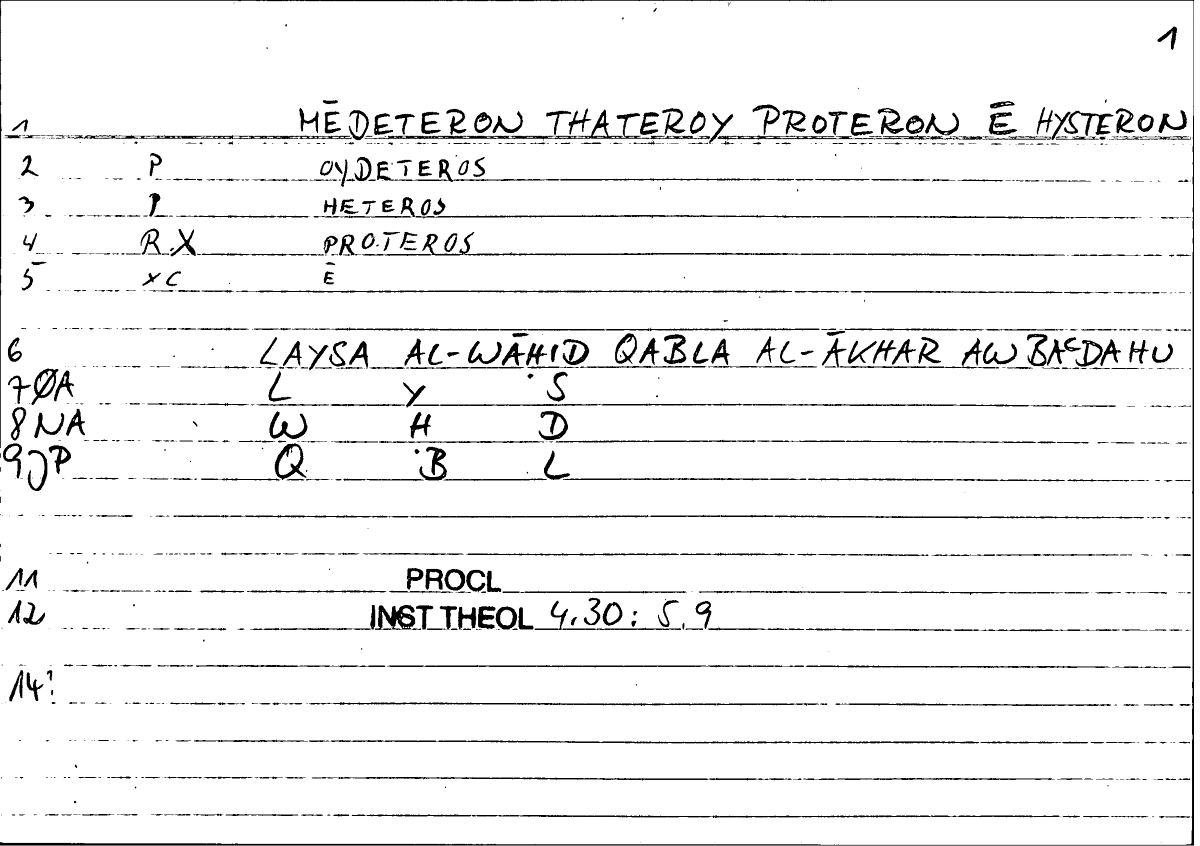 1
1 MĒDETERON THATEROY PROTERON Ē HYSTERON
2 P OYDETEROS
3 P HETEROS
4 R.X PROTEROS
5 XC Ē
6 LAYSA AL-WĀHID QABLA AL-ĀKHAR AW BAᶜDAHU
7 ØA L Y S
8 NA W H D
9 JP Q B L
11 PROCL
12 INST THEOL 4.30: 5.9
14?